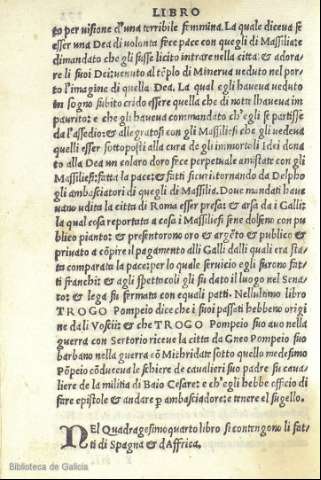 LIBRO
to per uisione d'una terribile femmina. La quale diceua se
esser una Dea di uolonta fece pace con quegli di Massilia: &
dimandato che gli fusse licito intrare nella citta: & adora-
re li suoi Dei: uenuto al tẽplo di Minerua ueduto nel por-
to l'imagine di quella Dea. La qual egli haueua ueduto
in sogno subito crido essere quella che di notte lhaueua im
paurito: e che gli haueua commandato ch'egli se partisse
da l'assedio: & allegratosi con gli Massiliesi che gli uedeua
quelli esser sottoposti alla cura de gli immortoli Idei dona
to alla Dea un colaro doro fece perpetuale amistate con gli
Massiliesi: fatta la pace: & fatti sicuri. tornando da Delpho
gli ambasciatori di quegli di Massilia. Doue mandati haue
uano udita la citta di Roma esser presa: & arsa da i Galli:
la qual cosa reportata a casa i Massiliesi sene dolseno con pu
blico pianto: & presentorono oro & argẽto & publico &
priuato a cõpire il pagamento alli Galli dalli quali era sta-
ta comparata la pace: per lo quale seruicio egli furono fat-
ti franchi: & agli spettacoli gli su dato il luogo nel Sena-
to: & lega su fermata con equali patti. Nellultimo libro
TROGO Pompeio dice che i suoi passati hebbeno origi
ne da li Voscii: & che TROGO Pompeio suo auo nella
guerra con Sertorio riceue la citta da Gneo Pompeio suo
barbano nella guerra cõ Michridate sotto quello medesimo
Põpeio cõduceua le schiere de caualieri suo padre su caua
liere de la militia di Baio Cesare: e ch'egli hebbe officio di
fare epistole & andare ꝑ ambasciadore: e tenere el sugello.
NEl Quadragesimoquarto libro si contengono li fat-
ti di Spagna & d'Affrica.
Biblioteca de Galicia